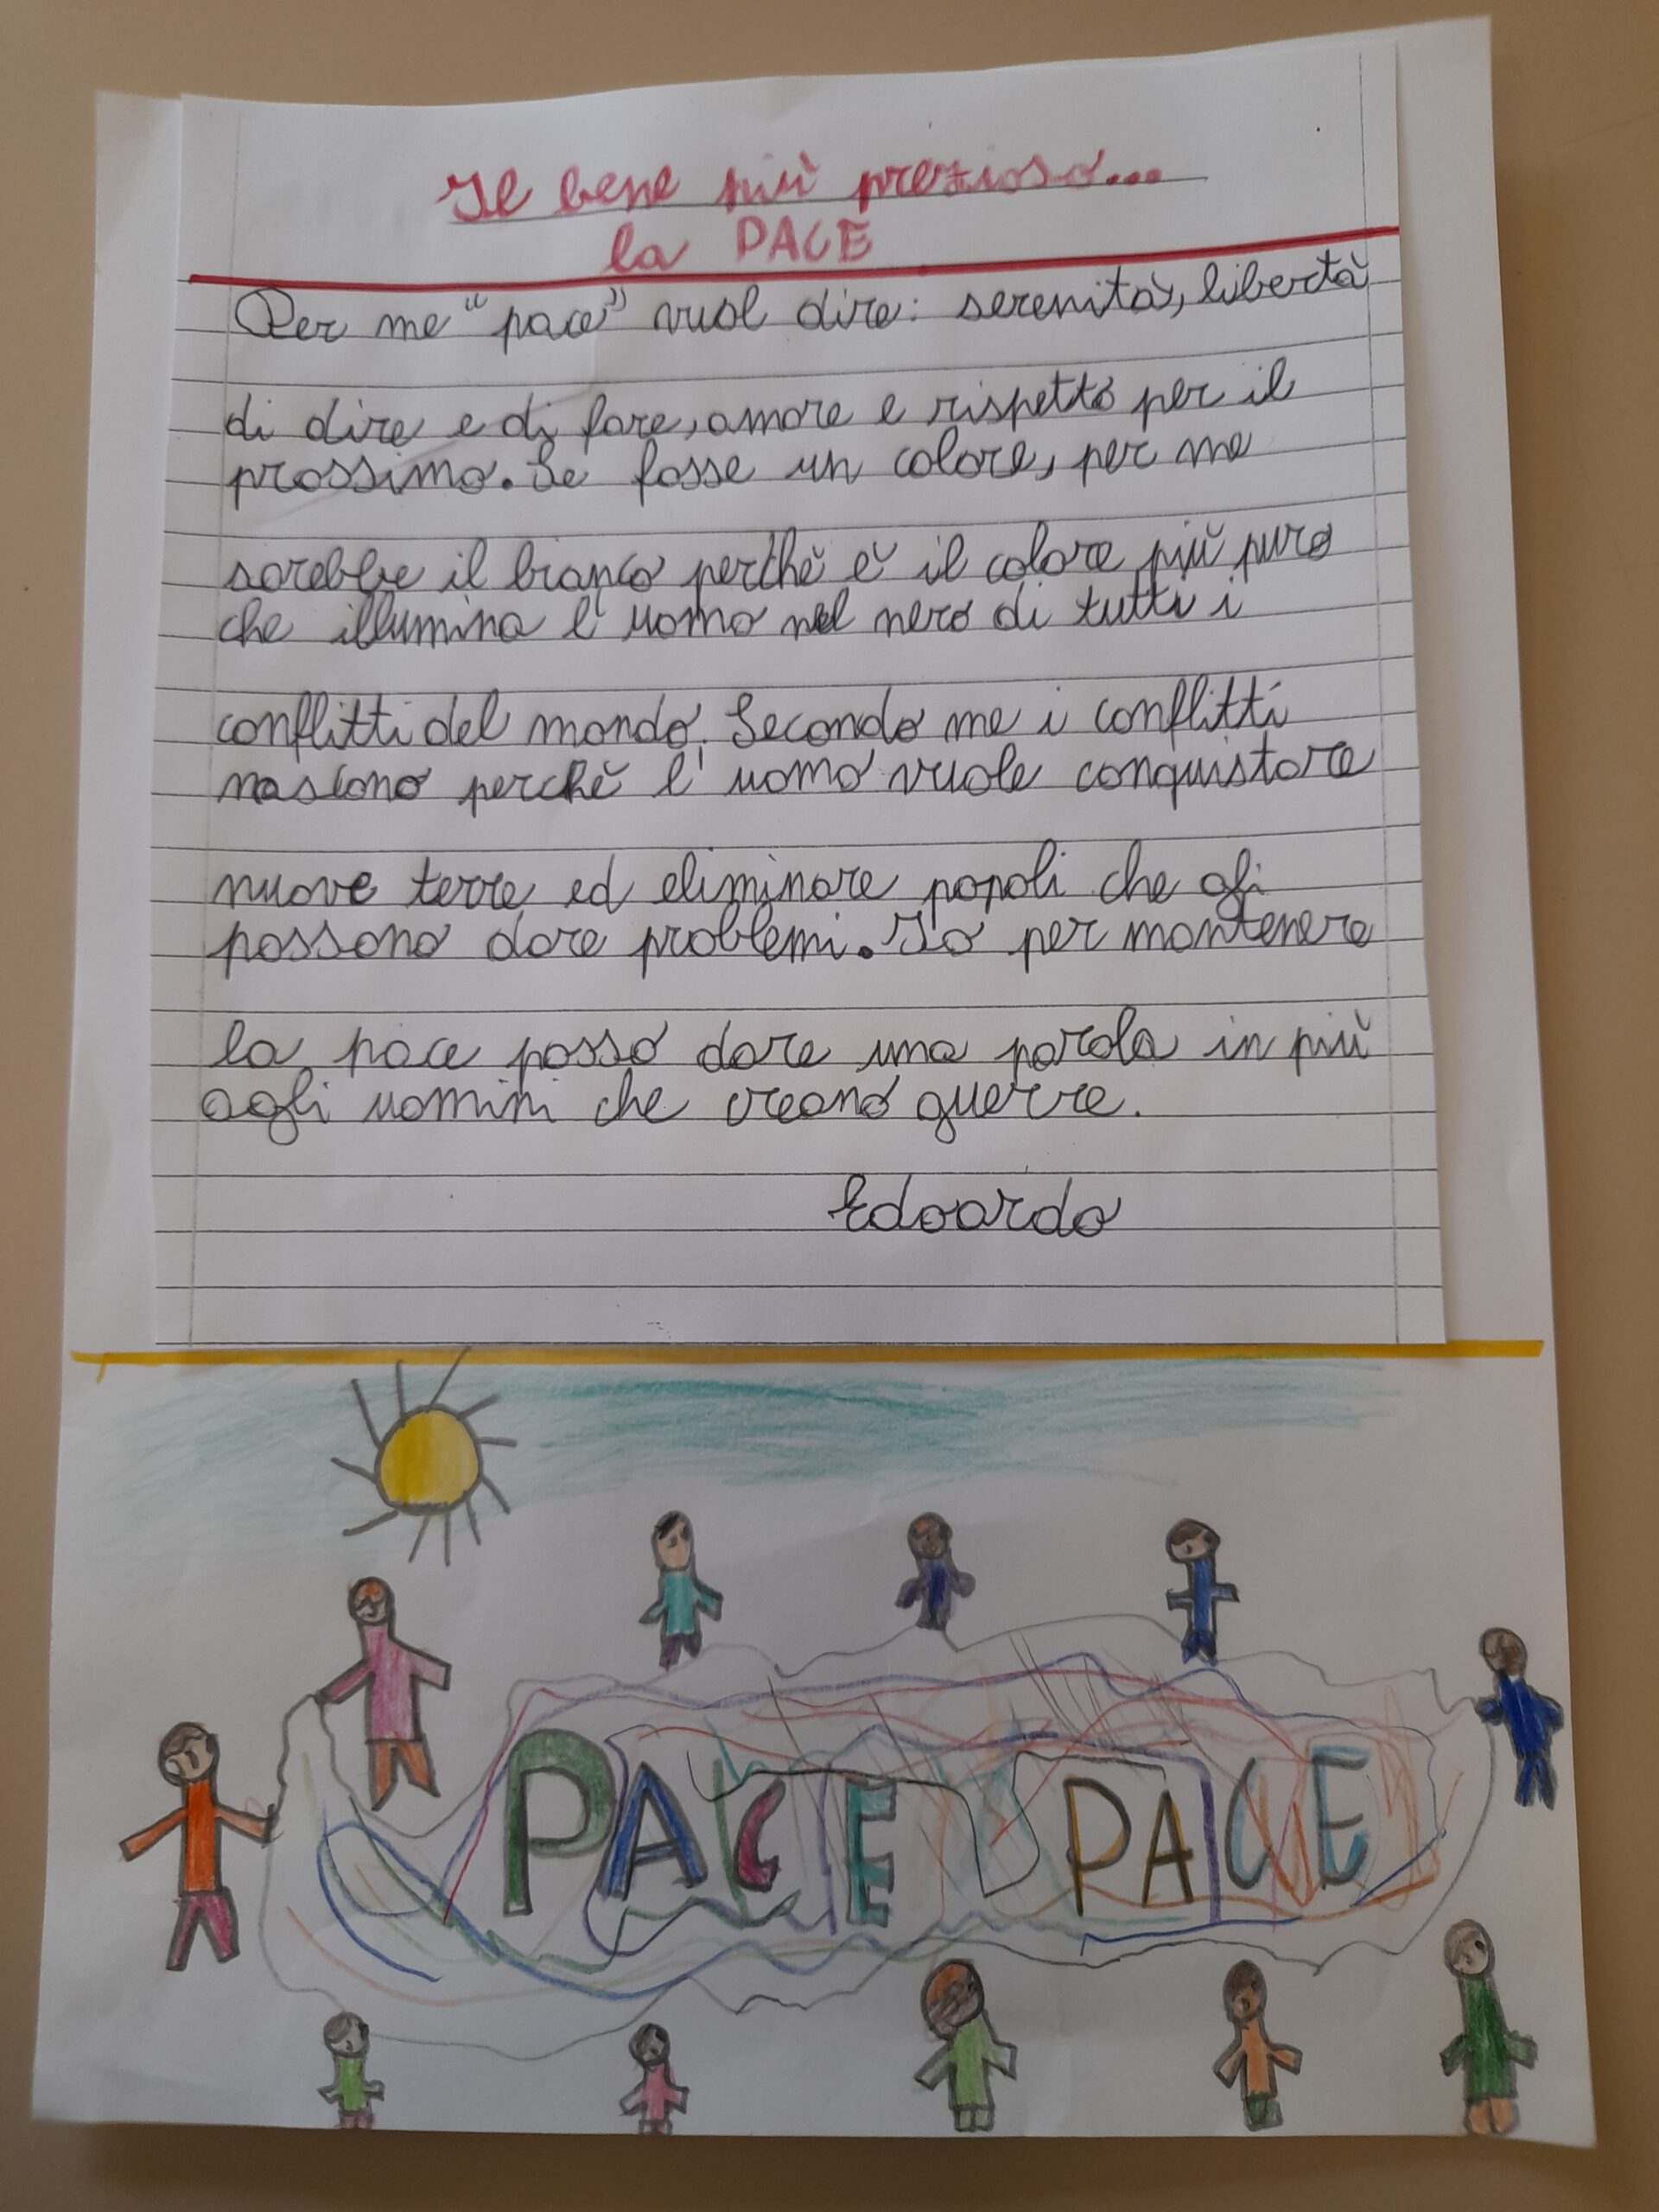 Il bene più prezioso...
la PACE
Per me "pace" vuol dire: serenità, libertà
di dire e di fare, amore e rispetto per il
prossimo. Se fosse un colore, per me
sarebbe il bianco perchè è il colore più puro
che illumina l'uomo nel nero di tutti i
conflitti del mondo. Secondo me i conflitti
nascono perchè l'uomo vuole conquistare
nuove terre ed eliminare popoli che gli
possono dare problemi. Io per mantenere
la pace posso dare una parola in più
agli uomini che creano guerre.
Edoardo
PACE PACE